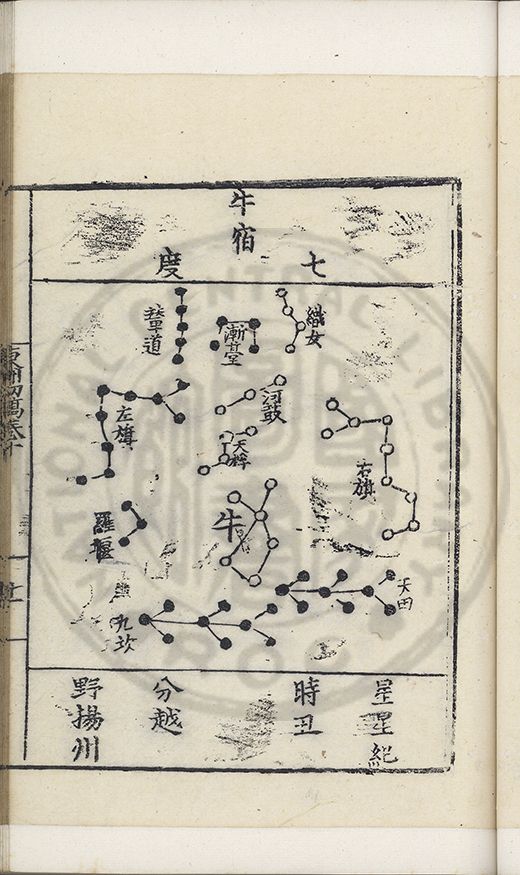 牛宿
七度
織女
漸臺
輦道
河鼓
天桴
左旗
右旗
牛
羅堰
天田
九坎
星星紀
時丑
分越
野揚州